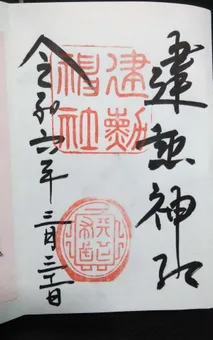 建勲神社
建勳
神社
令和六年三月二十日